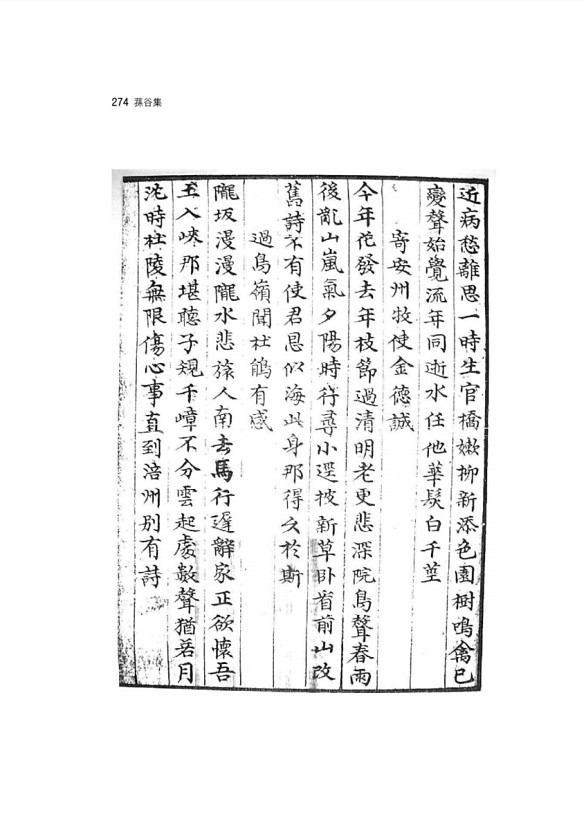 274 蓀谷集
近病愁離思一時生官橋嫩柳新添色園樹鳴禽已
變聲始覺流年同逝水任他華髮白千莖
寄安州牧使金德諴
今年花發去年枝節過清明老更悲深院鳥聲春雨
後亂山嵐氣夕陽時行尋小逕披新草臥看前山改
舊詩不有使君恩似海此身那得久於斯
過鳥嶺聞杜鵑有感
隴坂漫漫隴水悲旅人南去馬行遲辭家正欲懷吾
土入峽那堪聽子規千嶂不分雲起處數聲猶若月
沈時杜陵無限傷心事直到涪州別有詩